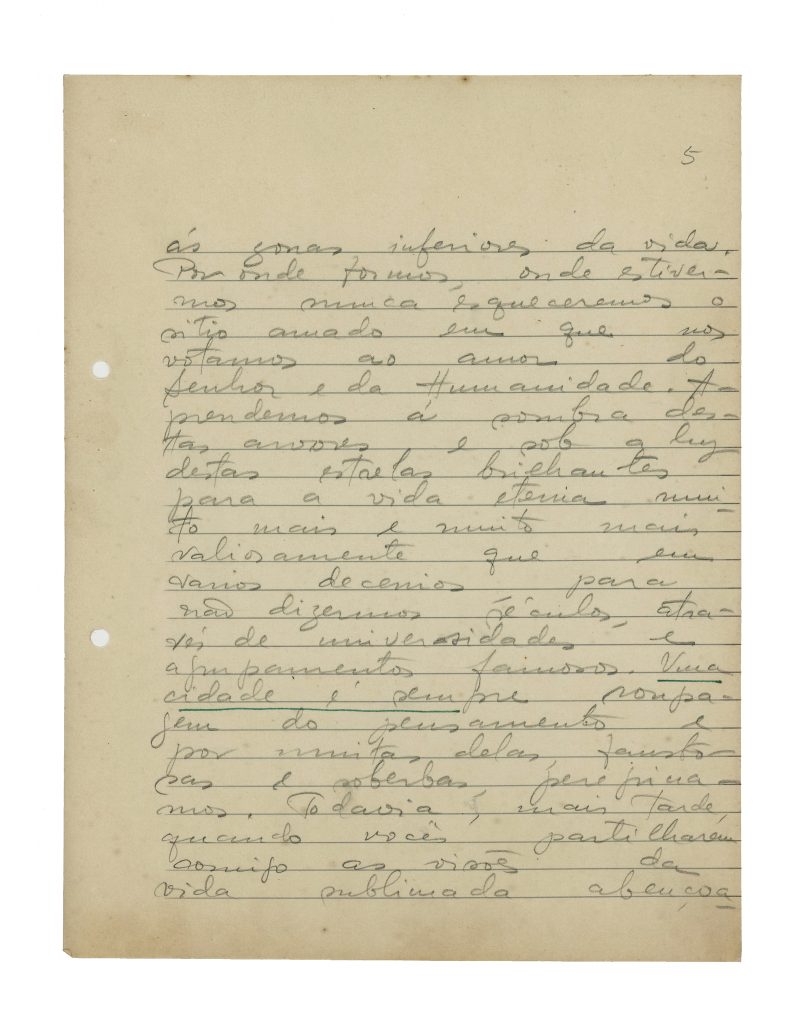 5
ás zonas inferiores da vida.
Por onde formos, onde estiver-
mos nunca esqueceremos o
sitio amado em que nos
votamos ao amor do
Senhor e da Humanidade. A-
prendemos á sombra des-
tas arvores e sob a luz
destas estrelas brilhantes
para a vida eterna mui-
to mais e muito mais
valiosamente que em
varios decenios para
não dizermos séculos, atra-
vés de universidades e
agrupamentos famosos. Uma
cidade é sempre roupa-
gem do pensamento e
por muitas delas, fausto-
sas e soberbas, peregrina-
mos. Todavia, mais tarde,
quando vocês partilharem
comigo as visões da
vida sublimada abençoa-